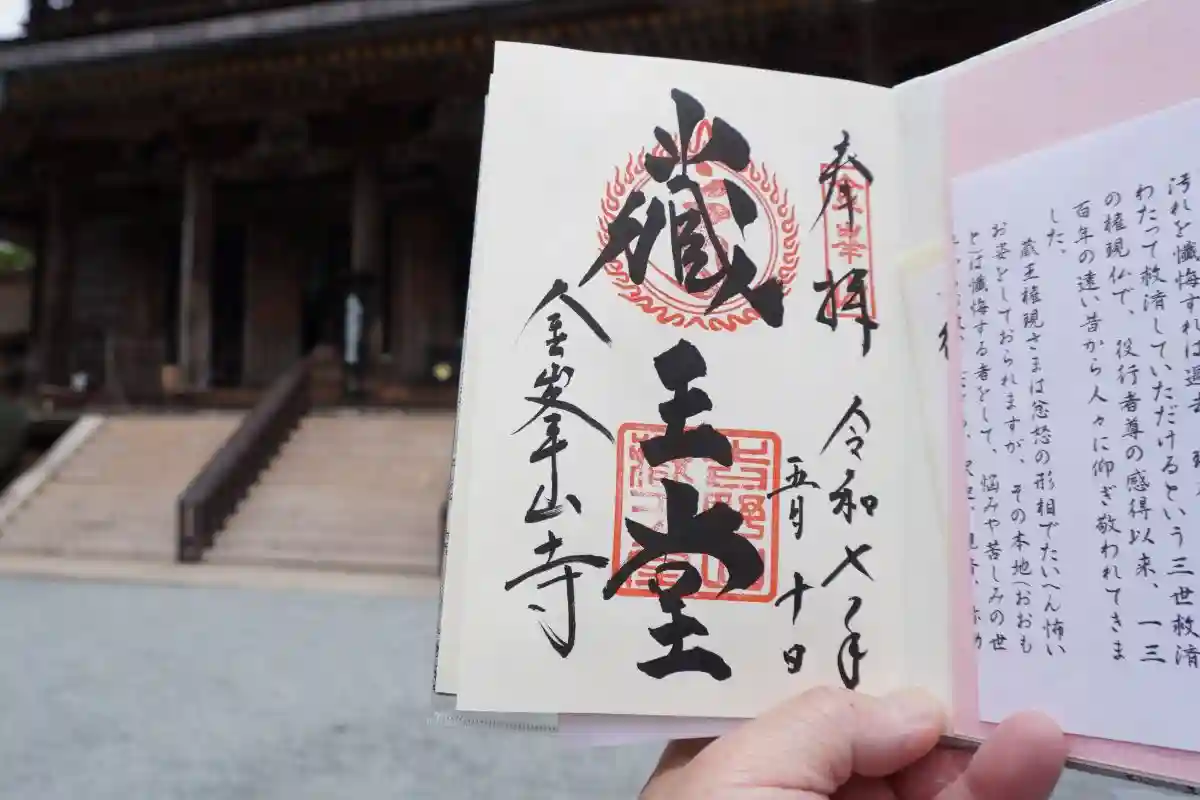 汚れを懺悔すれば過去
わたって救済していただけるという三世救済
の権現仏で、役行者尊の感得以来、一三
百年の遠い昔から人々に仰ぎ敬われてきま
した。
蔵王権現さまは忿怒の形相でたいへん怖い
お姿をしておられますが、その本地(おおも
と)は懺悔する者をして、悩みや苦しみの世
奉拝 令和七年
五月十日
藏王堂
金峯山寺